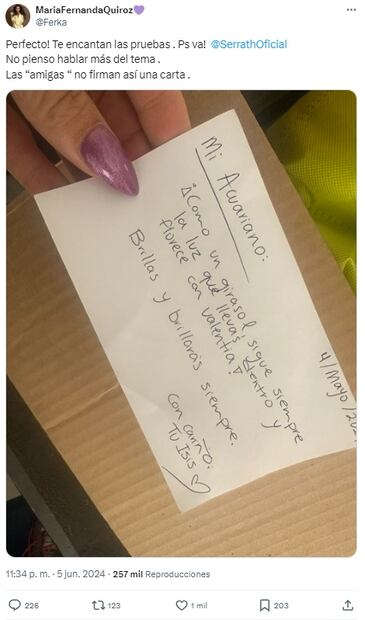 MariaFernandaQuiroz💜
@Ferka
Perfecto! Te encantan las pruebas . Ps va! @SerrathOficial
No pienso hablar más del tema .
Las “amigas “ no firman así una carta .
4/Mayo/202
Mi Acuariano:
¡Como un girasol, sigue siempre
la luz que llevas dentro y
florece con valentía!
Brillas y brillarás siempre.
con cariño:
Tu Isis ♡
11:34 p. m. · 5 jun. 2024 · 257 mil Reproducciones
226
123
1 mil
203